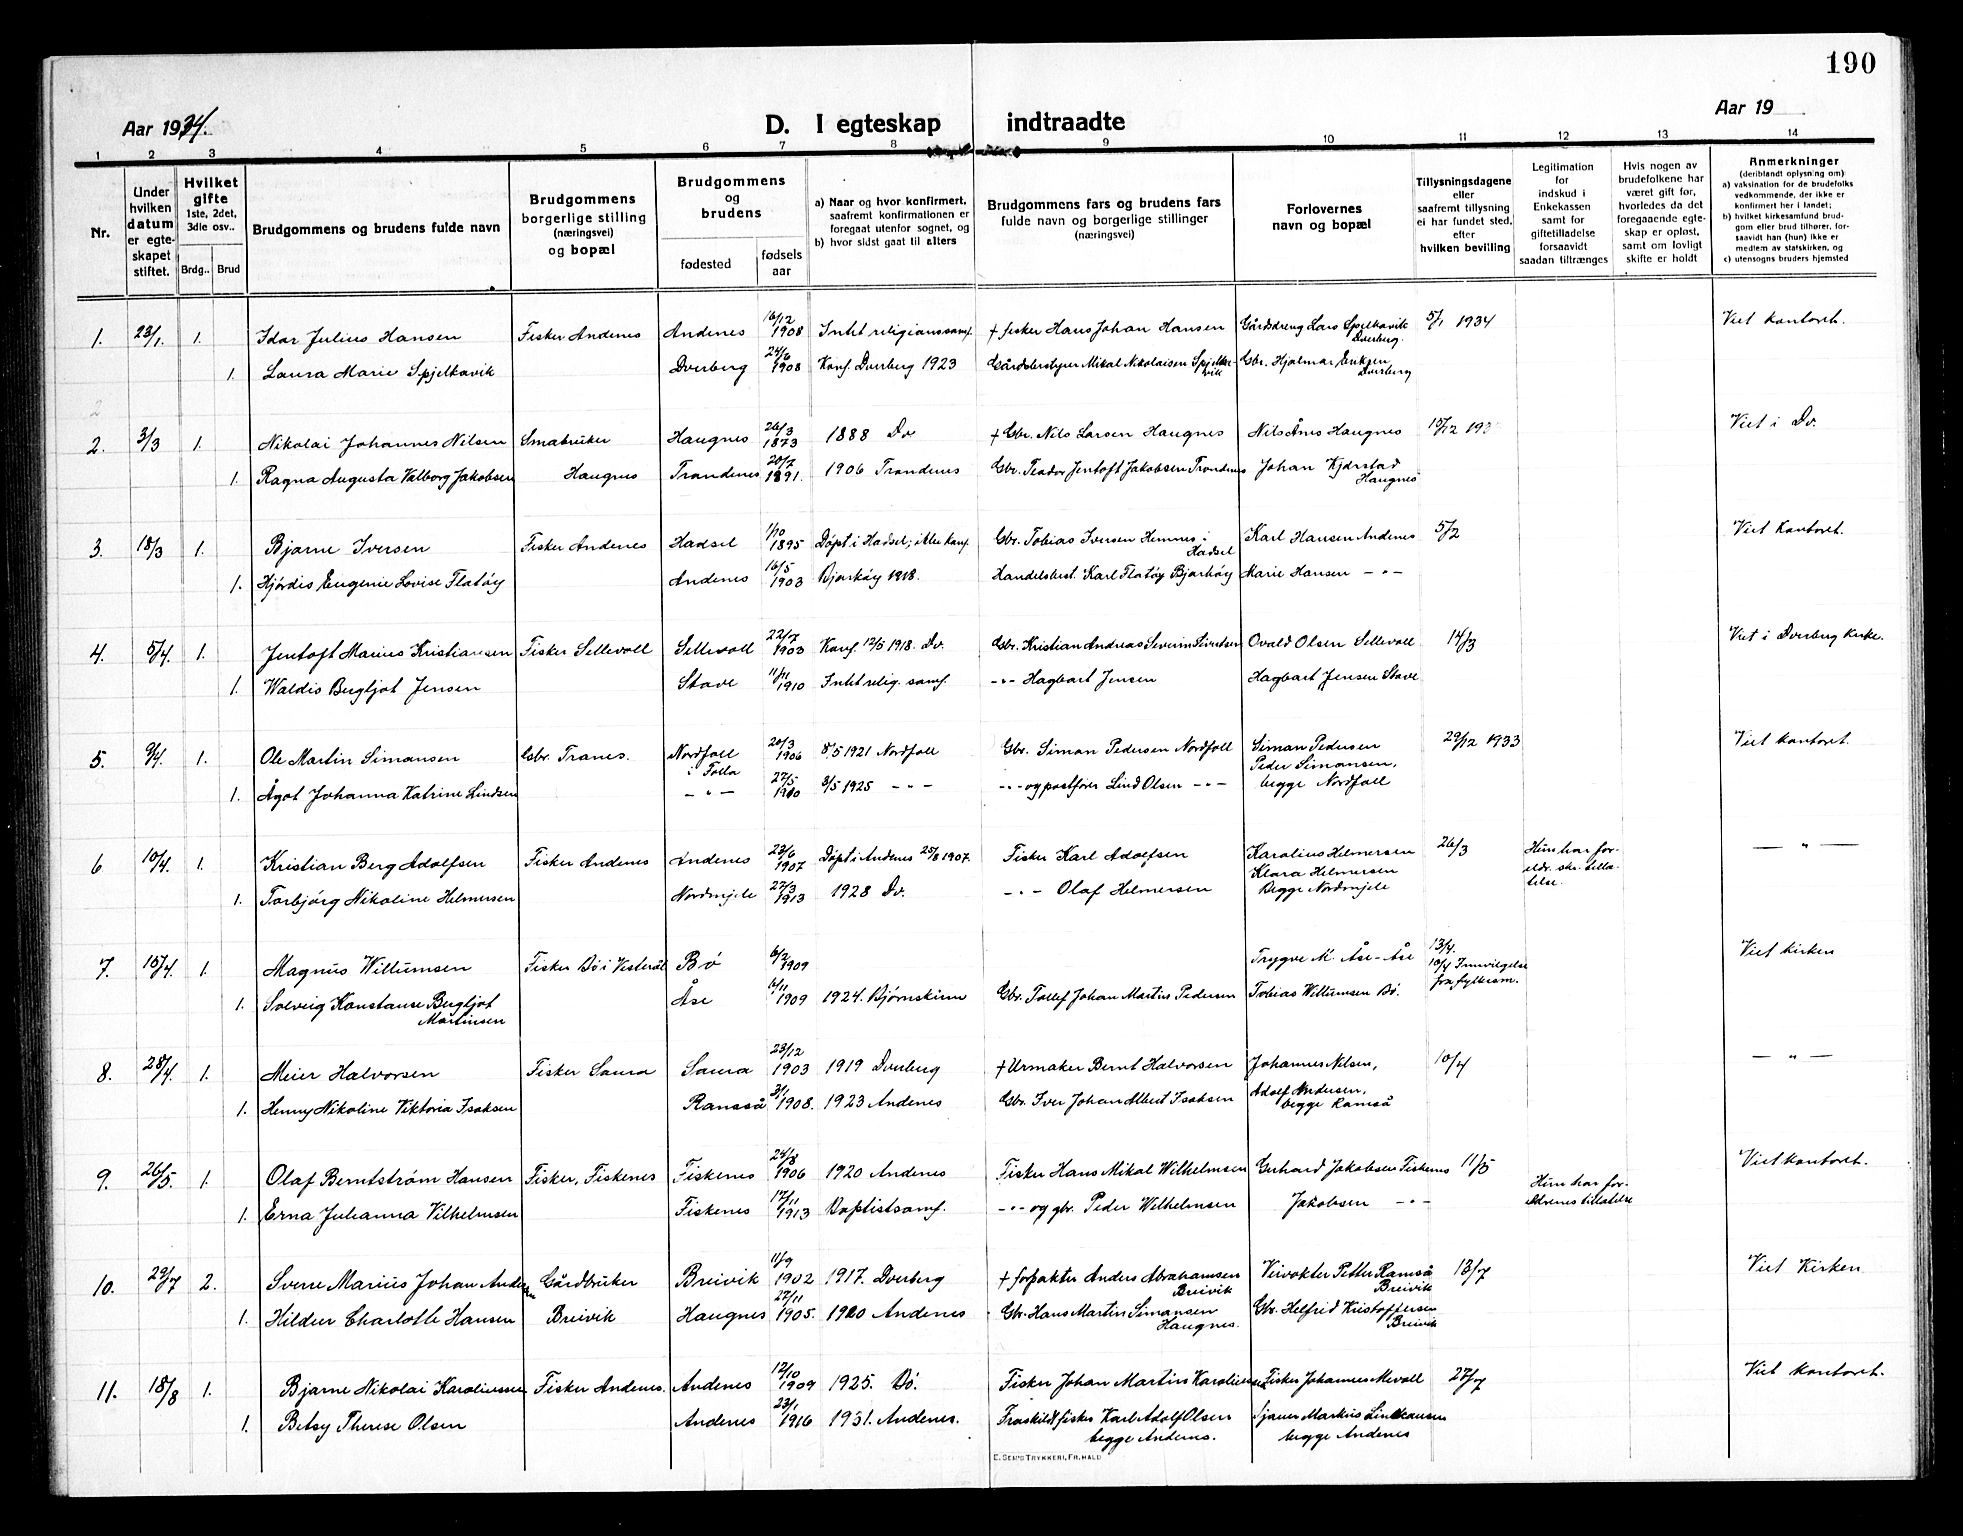 190
Aar 1934.
D. I egteskap indtraadte
Aar 19
1 2 3 4 5 6 7 8 9 10 11 12 13 14
Nr.
Under hvilken datum er egteskapet stiftet.
Hvilket gifte 1ste, 2det, 3dle osv..
Brdg.. Brud
Brudgommens og brudens fulde navn
Brudgommens borgerlige stilling (næringsvei) og bopæl
Brudgommens og brudens
fødested
fødsels aar
a) Naar og hvor konfirmert, saafremt konfirmationen er foregaat utenfor sognet, og
b) hvor sidst gaat til alters
Brudgommens fars og brudens fars fulde navn og borgerlige stillinger (næringsvei)
Forlovernes navn og bopæl
Tillysningsdagene eller saafremt tillysning ei har fundet sted, efter hvilken bevilling
Legitimation for indskud i Enkekassen samt for giftetilladelse forsaavidt saadan tiltrænges
Hvis nogen av brudefolkene har været gift før, hvorledes da det foregaaende egteskap er opløst, samt om lovligt skifte er holdt
Anmerkninger (deriblandt oplysning om)
a) vaksination for de brudefolks vedkommende, der ikke er konfirmert her i landet;
b) hvilket kirkesamfund brudgom eller brud tilhører, forsaavidt han (hun) ikke er medlem av statskirken, og
c) utensogns bruders hjemsted
1. 23/1. 1. Idar Julius Hansen Fisker Andenes Andenes 16/12 1908 Intet religionssamf. † fisker Hans Johan Hansen Gårdsdreng Lars Spelkavik Dverberg. 5/1 1934 Viet kontoret.
1. Laura Marie Spjelkavik Dverberg 24/6 1908 Konf. Dverberg 1923 Gårdbestyrer Mikal Nikolaisen Spjelkavik Gbr. Hjalmar Eriksen Dverberg
2
2. 3/3 1. Nikolai Johannes Nilsen Småbruker Haugnes 26/3 1873 1888 Dv † Gbr. Nils Larsen Haugnes Nils Ånes Haugnes 19/12 193 Viet i Dv.
1. Ragna Augusta Valborg Jakobsen Haugnes Trondenes 20/7 1891. 1906 Trondenes Gbr. Teodor Jentoft Jakobsen Trondenes Johan Kjørstad Haugnes
3. 18/3 1. Bjarne Iversen Fisker Andenes Hadsel 1/10 1895 Døpt i Hadsel; ikke konf. Gbr. Tobias Iversen Hennes i Hadsel Karl Hansen Andenes 5/2 Viet kontoret.
1. Hjørdis Eugenie Lovise Flatøy Andenes 16/5 1903 Bjarkøy 1918. Handelsbest. Karl Flatøy Bjarkøy Marie Hansen – " –
4. 5/4. 1. Jentoft Marius Kristiansen Fisker Sellevoll Sellevoll 22/7 1903 Konf. 12/5 1918. Dv. Gbr. Kristian Andreas Severin Sivertsen Ovald Olsen Sellevoll 14/3 Viet i Dverberg kirke.
1. Waldis Bergljot Jensen Stave 11/11 1910 Intet relig. samf. – " – Hagbart Jensen Hagbart Jensen Stave
5. 9/4. 1. Ole Martin Simonsen Gbr. Tranes. Nordfoll i Folla 20/3 1906 8/5 1921 Nordfoll Gbr. Simon Pedersen Nordfoll Simon Pedersen 29/12 1933 Viet kontoret.
1. Ågot Johanna Katrine Lindsen – " – 27/5 1910 3/5 1925 – " – – " – og postfører Lind Olsen – " – Peder Simonsen, begge Nordfoll
6 10/4. 1. Kristian Berg Adolfsen Fisker Andenes Andenes 23/6 1907 Døpt i Andenes 25/8 1907. Fisker Karl Adolfsen Karolius Helmersen 26/3 Hun har foreldr. skr. tillatelse. – " –
1. Torbjørg Nikoline Helmersen Nordmjele 27/3 1913 1928 Dv. – " – Olaf Helmersen Klara Helmersen Begge Nordmjele
7. 15/4. 1. Magnus Willumsen Fisker Bø i Vesterål Bø 6/2 1909 Trygve M. Åse – Åse 13/4. 10/4 Innvilgelse fra fylkesm. Viet kirken
1. Solveig Konstanse Bergljot Martinsen Åse 6/11 1909 1924. Bjørnskinn Gbr. Tollef Johan Martin Pedersen Tobias Willumsen Bø.
8. 28/4. 1. Meier Halvorsen Fisker Saura Saura 23/12 1903 1919 Dverberg † Urmaker Bernt Halvorsen Johannes Nilsen, 10/4 – " –
1. Henny Nikoline Viktoria Isaksen Ramså 3/1 1908. 1923 Andenes Gbr. Iver Johan Albert Isaksen Adolf Andersen, begge Ramså
9. 26/5. 1. Olaf Berntstrøm Hansen Fisker, Fiskenes Fiskenes 24/8 1906 1920 Andenes Fisker Hans Mikal Wilhelmsen Gerhard Jakobsen Fiskenes 11/5 Hun har foreldrenes tillatelse Viet kontoret.
1. Erna Julianna Vilhelmsen Fiskenes 17/11 1913 Baptistsamf. – " – og gbr. Peder Wilhelmsen Jakobsen – " –
10. 29/7 2. Sverre Marius Johan Andersen Gårdbruker Breivik 11/9 1902 1917. Dverberg † forpakter Anders Abrahamsen Breivik Veivokter Petter Ramså Breivik 13/7 Viet Kirken
1. Hildur Charlotte Hansen Breivik Haugnes 27/11 1905. 1920 Andenes Gbr. Hans Martin Simonsen Haugnes. Gbr. Helfrid Kristoffersen Breivik
11. 18/8 1. Bjarne Nikolai Karoliussen Fisker Andenes. Andenes 12/10 1909 1925. Bø. Fisker Johan Martin Karoliussen Fisker Johannes Mevoll 27/7 Viet kontoret.
1. Betsy Therese Olsen Andenes 23/1 1916 1931. Andenes. Fraskildt fisker Karl Adolf Olsen begge Andenes. Sjauer Markus Lind Hansen begge Andenes
E. SEM'S TRYKKERI, FR.HALD